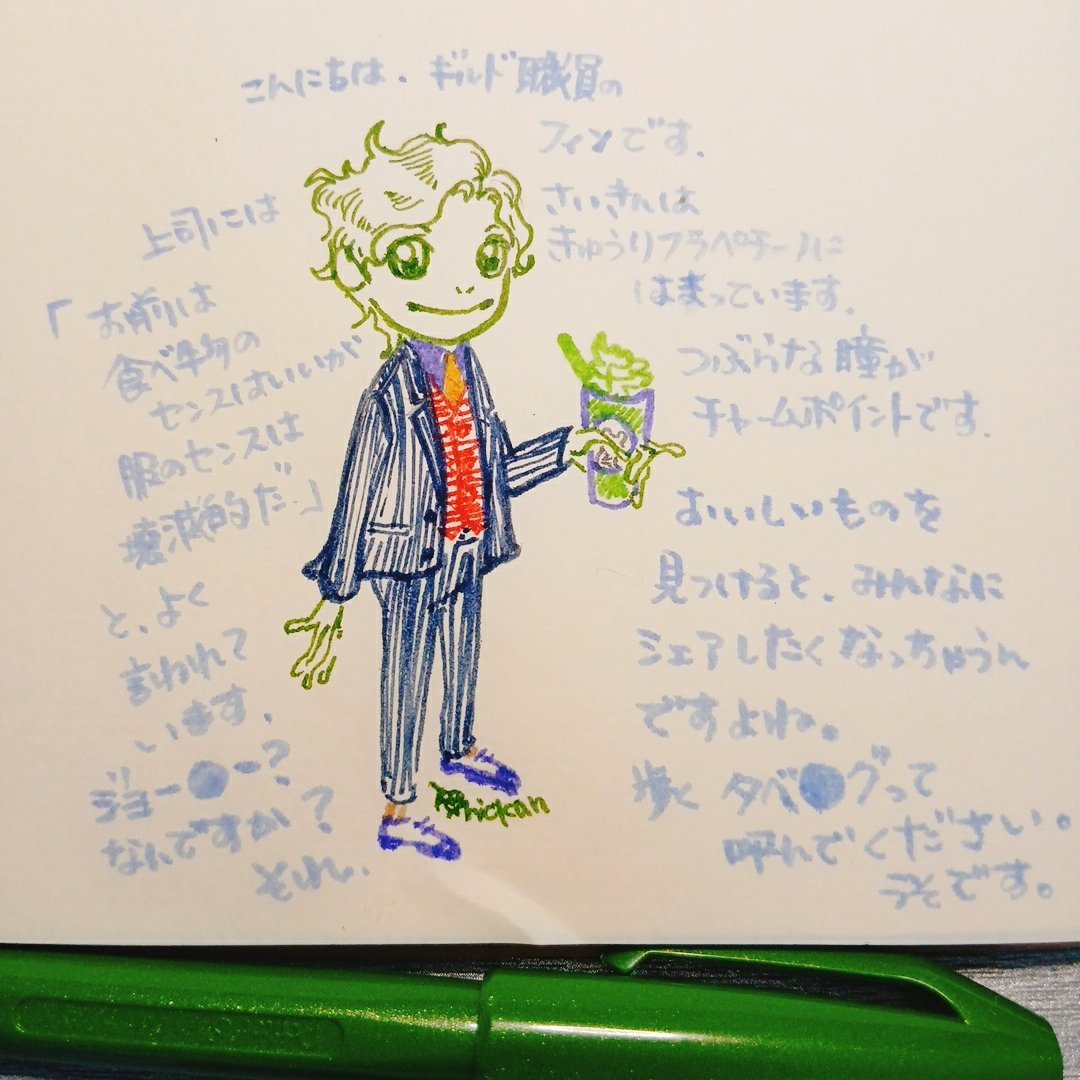 こんにちは．ギルド職員の
フィンです．
さいきんは
きゅうりフラペチーノに
はまっています．
つぶらな瞳が
チャームポイントです．
おいしいものを
見つけると、みんなに
シェアしたくなっちゃうん
ですよね。
歩く タベ●グって
呼んでください。
うそです。
上司には
「お前は
食べ物の
センスはいいが
服のセンスは
壊滅的だ」
と、よく
言われて
います．
ジョー●ー？
なんですか？
それ．